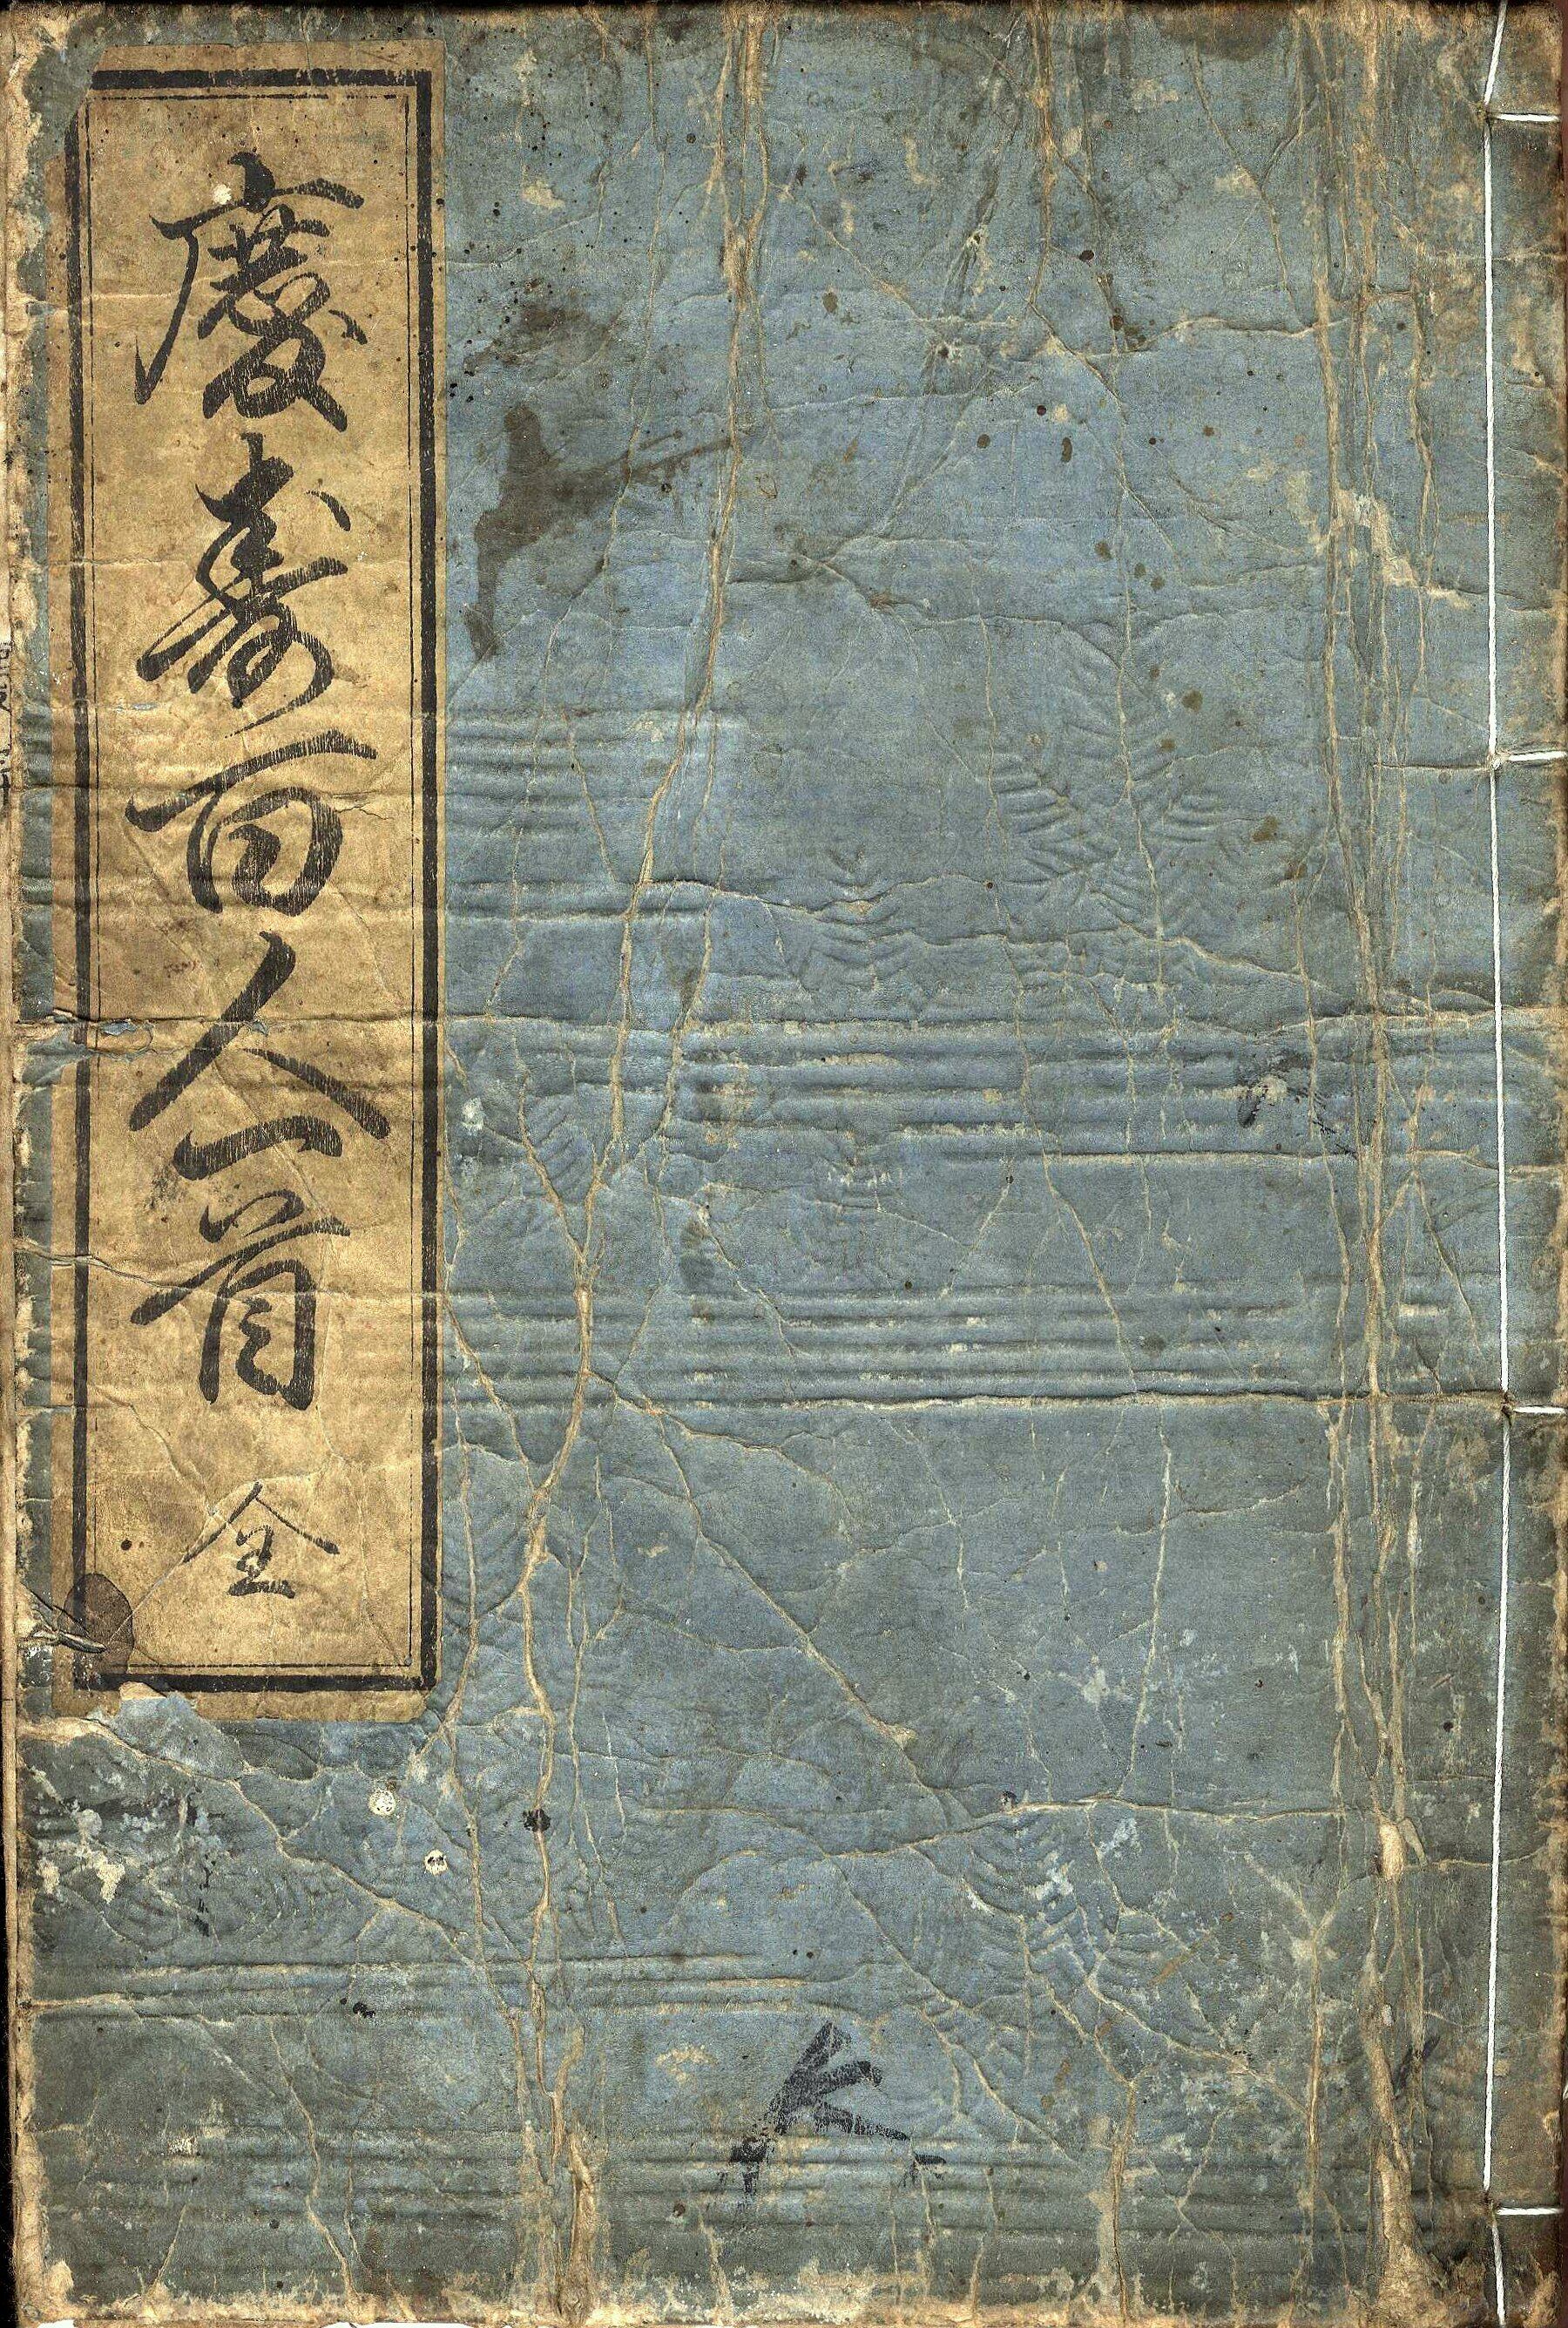 慶壽百人一首 全